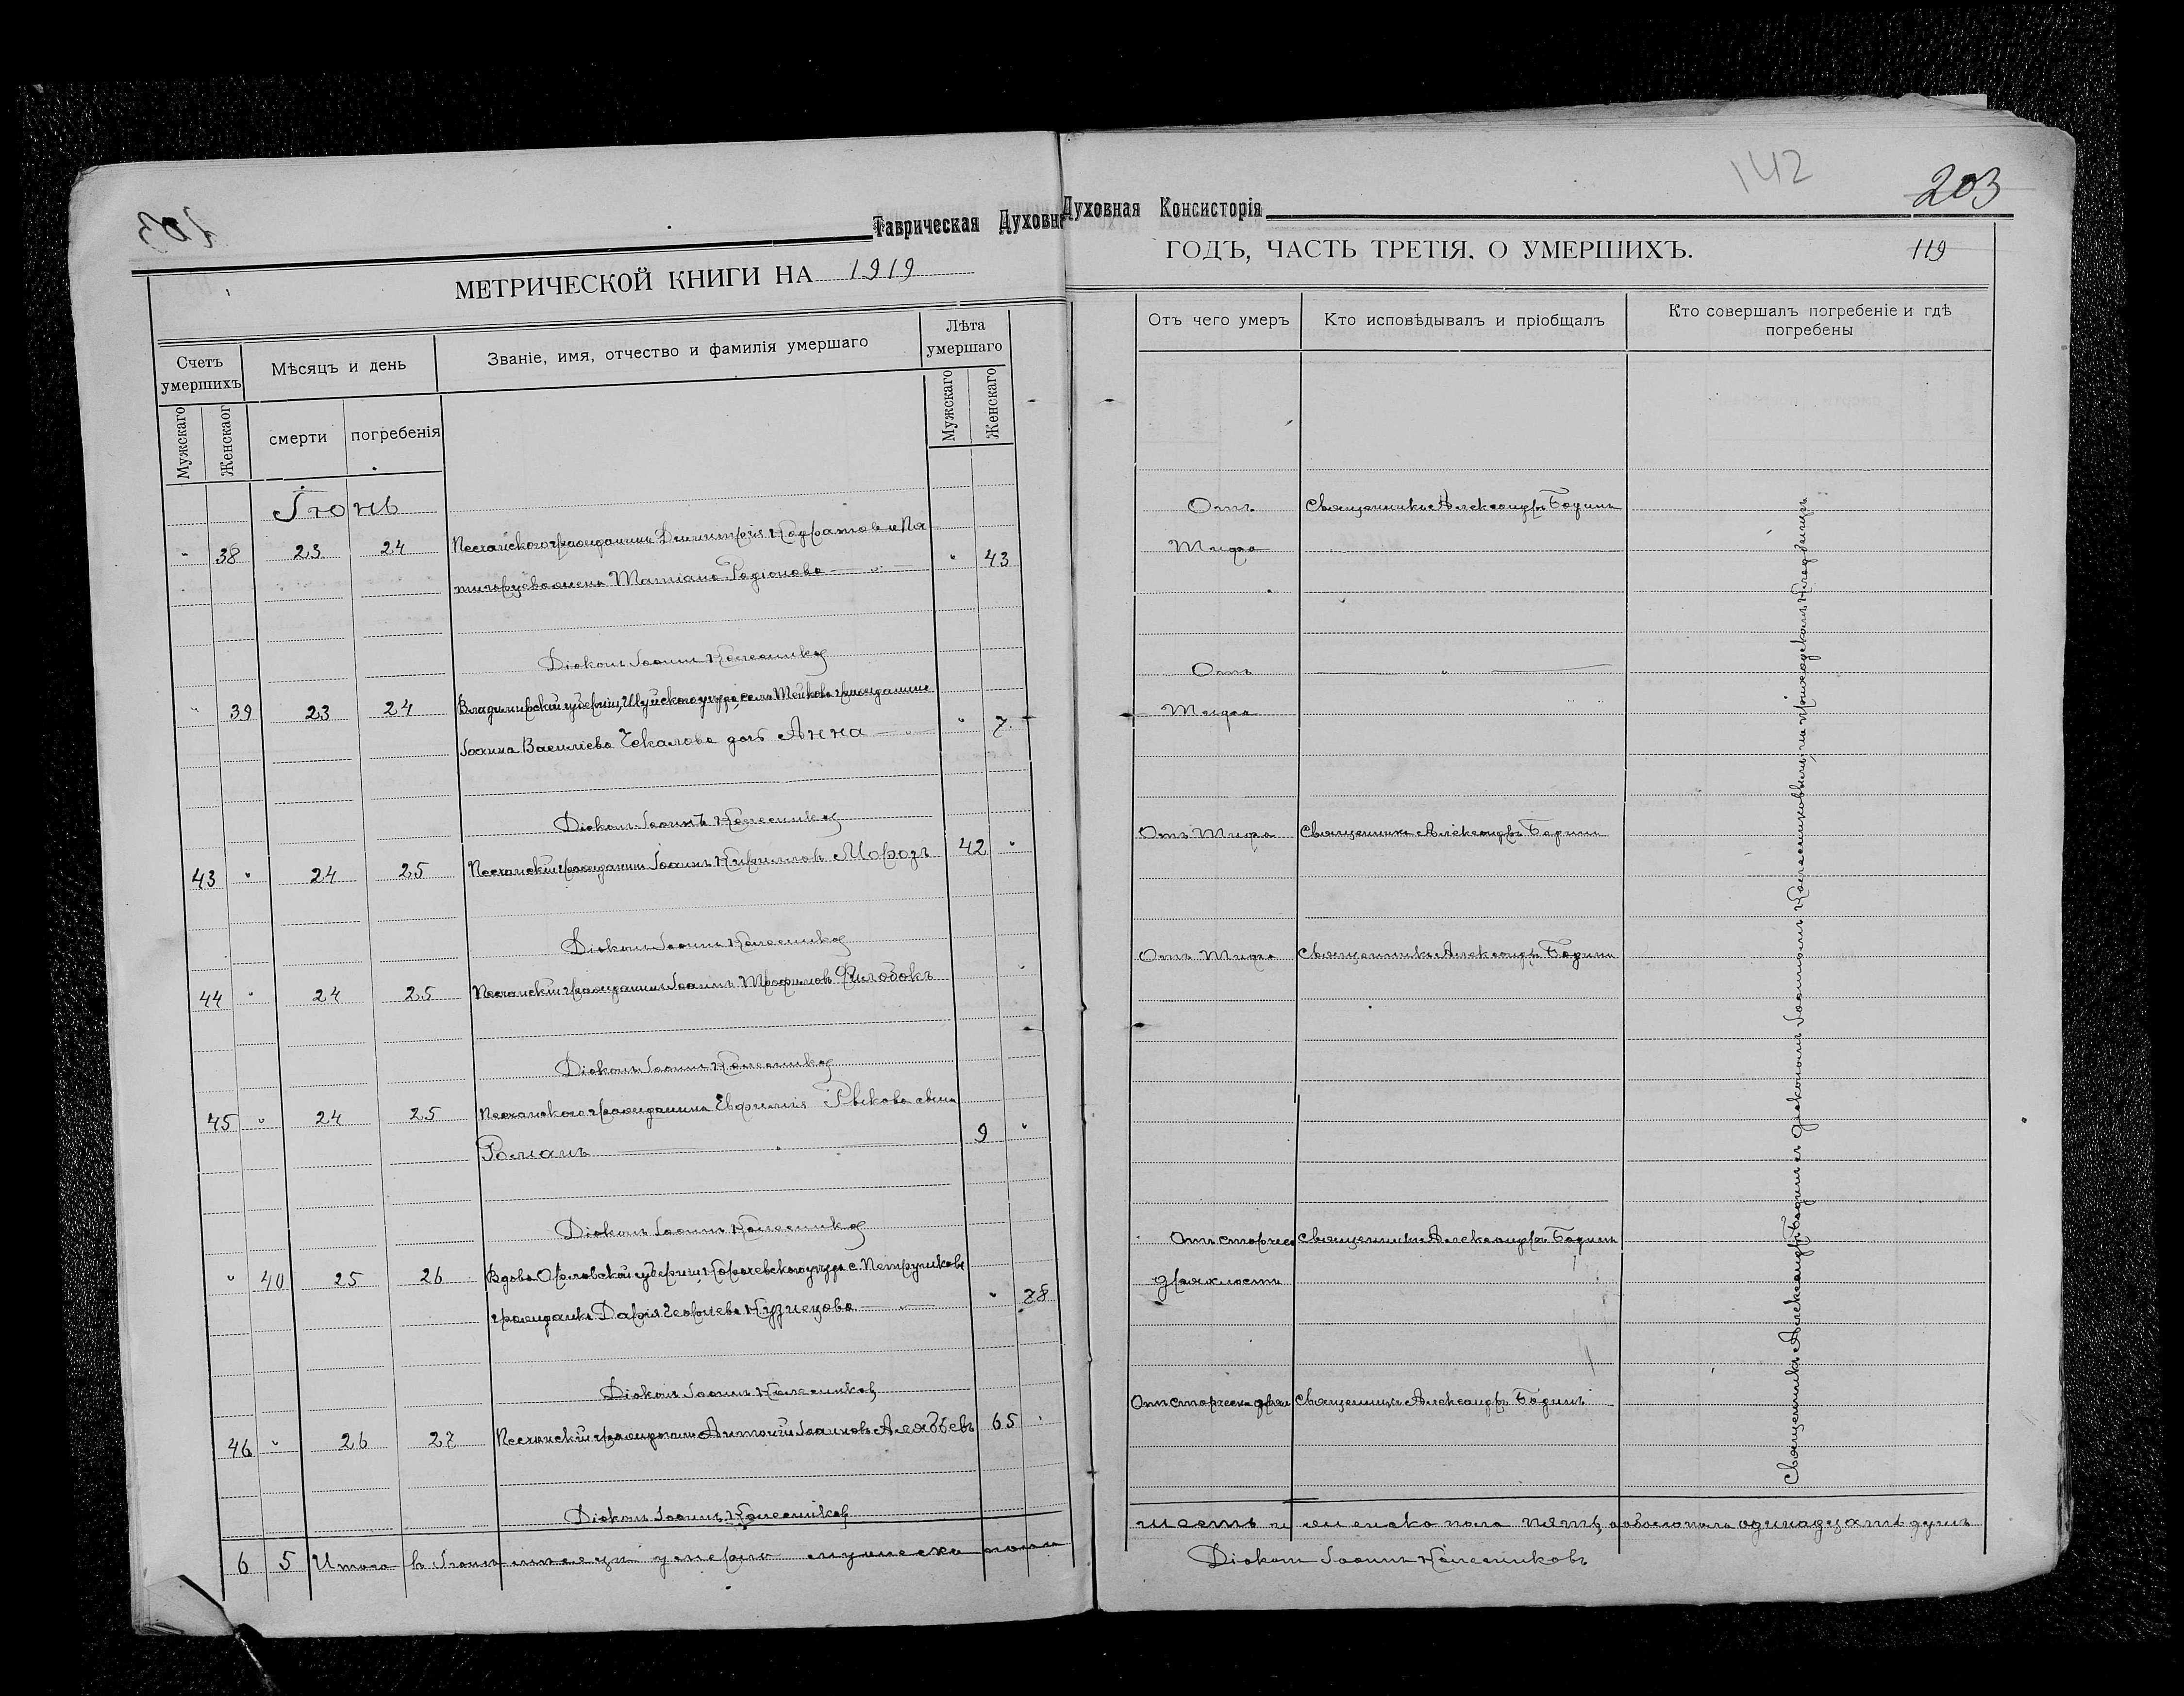 142
203
Таврическая Духовная Консисторія
МЕТРИЧЕСКОЙ КНИГИ НА 1919 ГОДЪ, ЧАСТЬ ТРЕТІЯ, О УМЕРШИХЪ.
119
Счетъ умершихъ
Мужскаго
Женскаог
Мѣсяцъ и день
смерти
погребенія
Званіе, имя, отчество и фамилія умершаго
Лѣта умершаго
Мужскаго
Женскаго
Отъ чего умеръ
Кто исповѣдывалъ и пріобщалъ
Кто совершалъ погребеніе и гдѣ погребены
Іюнь
" 38 23 24 гражданина Димитрія
жена Татіана Родіонова " 43
Отъ Тифа
Священникъ Александръ Бодинъ
Діаконъ Іоаннъ Колесников
" 39 23 24 Владимирской губерніи, Шуйского уѣзда, села Тейкова гражданина
Іоанна Василіева Чекалова дочь Анна " 7
Отъ Тифа
Діаконъ Іоаннъ Колесников
43 " 24 25 гражданинъ Іоаннъ Кирилловъ Морозъ 42 "
Отъ Тифа Священникъ Александръ Бодинъ
Діаконъ Іоаннъ Колесников
44 " 24 25 гражданинъ Іоаннъ Трофимовъ "
Отъ Тифа Священникъ Александръ Бодинъ
Діаконъ Іоаннъ Колесников
45 " 24 25 гражданина Евфимія Рѣкова сынъ
Романъ 9 "
Діаконъ Іоаннъ Колесников
" 40 25 26 Вдова Орловской губерніи Корочевского уѣзда с.
гражданка Дарія Георгіева Кузнецова " 78
Отъ старческ дряхлости
Священникъ Александръ Бодинъ
Діаконъ Іоаннъ Колесников
46 " 26 27 гражданинъ Антоній Іоанновъ Алябьевъ 65 "
Отъ старческ. дрях Священникъ Александръ Бодинъ
Діаконъ Іоаннъ Колесников
Священникъ Александръ Бодинъ съ діакономъ Іоанномъ Колесниковымъ, на приходскомъ кладбищѣ
6 5 Итого въ Іюнѣ мѣсяцѣ умерло мужеска пола
шесть и женско пола пять, а обоего пола одинадцать душъ
Діаконъ Іоаннъ Колесниковъ